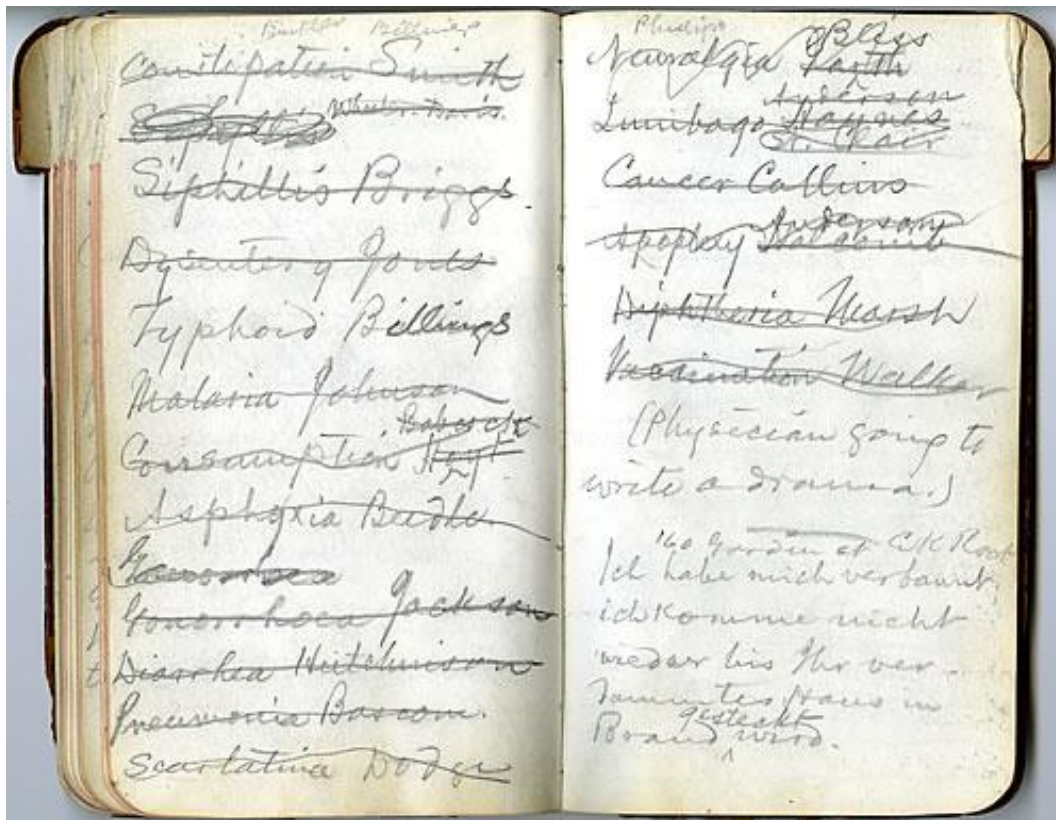 Butler Billings
Constipation Smith
Wheeler Davis.
Siphillis Briggs.
Dysentery Jones
Typhoid Billings
Malaria Johnson
Babcock
Consumption Hoyt
Asphyxia Beedle.
Gonorrhoea Jackson
Diarrhea Hutchinson
Pneumonia Bascom.
Scarlatina Dodge
Phillips
Bliss
Neuralgia
Anderson
Lumbago Haynes
St. Clair
Cancer Collins
Anderson
Apoplexy Holcomb
Diphtheria Marsh
Vaccination Walker
(Physician going to
write a drama.)
Ich habe mich verbannt,
ich komme nicht
wieder bis Ihr ver-
dammtes Haus in
gesteckt
Brand wird.